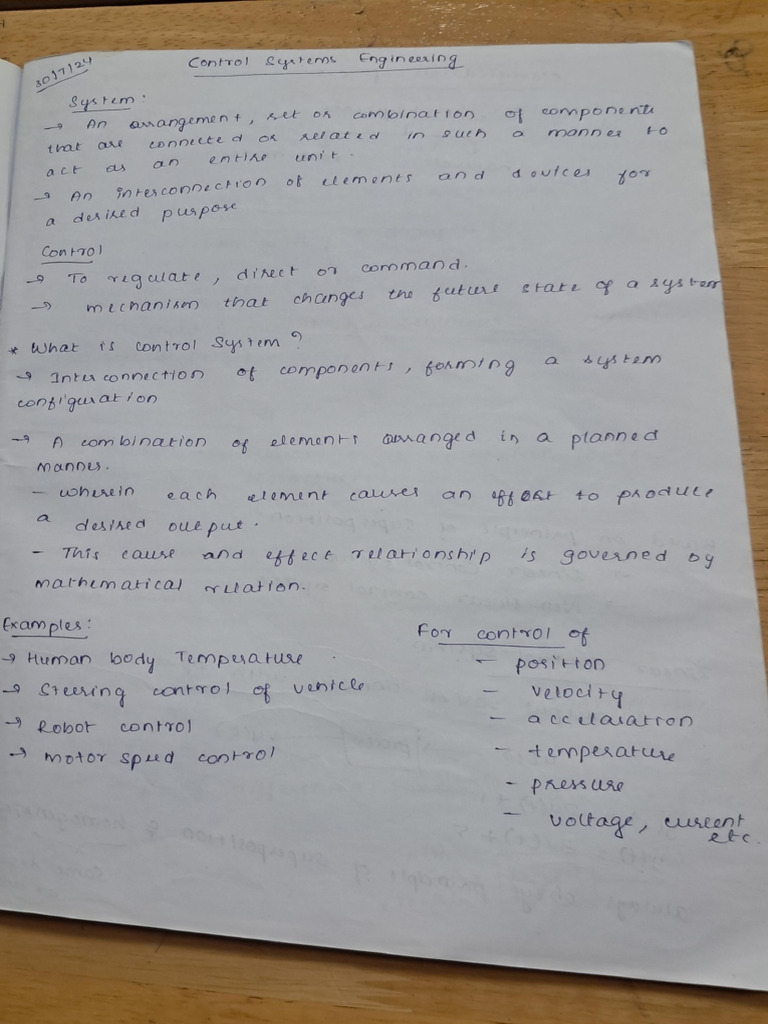 30/7/24
Control Systems Engineering
System:
→ An arrangement, set or combination of components
that are connected or related in such a manner to
act as an entire unit.
→ An interconnection of elements and devices for
a desired purpose
Control
→ To regulate, direct or command.
→ mechanism that changes the future state of a system
* What is control System?
→ Interconnection of components, forming a system
configuration
→ A combination of elements arranged in a planned
manner.
- wherein each element causes an effort to produce
a desired output.
- This cause and effect relationship is governed by
mathematical relation.
Examples:
→ Human body Temperature
→ Steering control of vehicle
→ Robot control
→ Motor speed control
For control of
- position
- velocity
- accelaration
- temperature
- pressure
- voltage, current
etc.